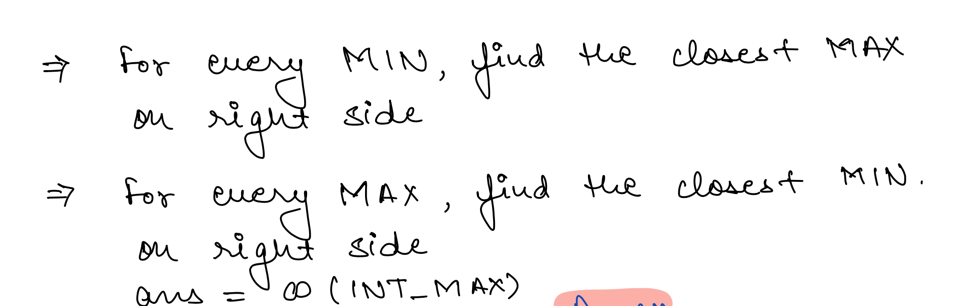 ⇒ for every MIN, find the closest MAX
on right side
⇒ for every MAX, find the closest MIN.
on right side
ans = ∞ (INT_MAX)